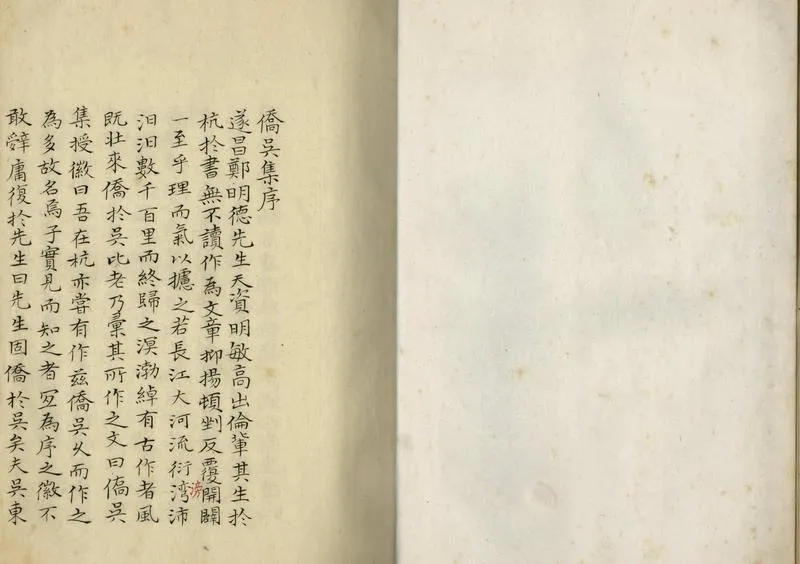 僑吳集序
遂昌鄭明德先生天資明敏高出倫輩其生於
杭於書無不讀作為文章抑揚頓剉反覆開闢
一至乎理而氣以攄之若長江大河流衍湾沛
滂
汩汩數千百里而終歸之溟渤綽有古作者風
既壯來僑於吳比老乃彙其所作之文曰僑吳
集授徽曰吾在杭亦嘗有作茲僑吳久而作之
為多故名焉子實見而知之者宜為序之徽不
敢辭庸復於先生曰先生固僑於吳矣夫吳東